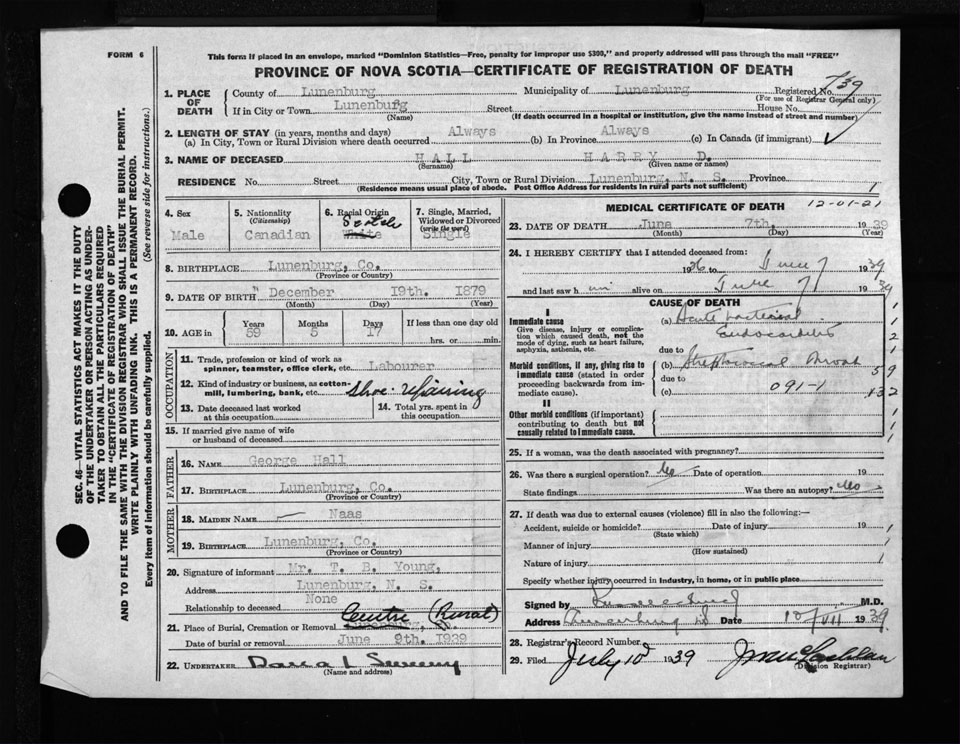 FORM 6
This form if placed in an envelope, marked "Dominion Statistics—Free, penalty for improper use $300," and properly addressed will pass through the mail "FREE"
PROVINCE OF NOVA SCOTIA—CERTIFICATE OF REGISTRATION OF DEATH
SEC. 46—VITAL STATISTICS ACT MAKES IT THE DUTY
OF THE UNDERTAKER OR PERSON ACTING AS UNDER-
TAKER TO OBTAIN ALL THE PARTICULARS REQUIRED
IN THE "CERTIFICATE OF REGISTRATION OF DEATH"
AND TO FILE THE SAME WITH THE DIVISION REGISTRAR WHO SHALL ISSUE THE BURIAL PERMIT.
WRITE PLAINLY WITH UNFADING INK. THIS IS A PERMANENT RECORD.
Every item of information should be carefully supplied. (See reverse side for instructions.)
1. PLACE OF DEATH
County of Lunenburg Municipality of Lunenburg Registered No. 739
(For use of Registrar General only)
If in City or Town Lunenburg Street House No.
(Name) (If death occurred in a hospital or institution, give the name instead of street and number)
2. LENGTH OF STAY (in years, months and days)
(a) In City, Town or Rural Division where death occurred Always (b) In Province Always (c) In Canada (if immigrant)
3. NAME OF DECEASED HALL HARRY D.
(Surname) (Given name or names)
RESIDENCE No. Street City, Town or Rural Division Lunenburg, N. S. Province
(Residence means usual place of abode. Post Office Address for residents in rural parts not sufficient) 1
4. Sex Male
5. Nationality (Citizenship) Canadian
6. Racial Origin White
7. Single, Married, Widowed or Divorced (write the word) Single
8. BIRTHPLACE Lunenburg, Co.
(Province or Country)
9. DATE OF BIRTH December 19th. 1879
(Month) (Day) (Year)
10. AGE in Years 59 Months 5 Days 17 If less than one day old hrs. or min.
OCCUPATION
11. Trade, profession or kind of work as spinner, teamster, office clerk, etc. Labourer
12. Kind of industry or business, as cotton-mill, lumbering, bank, etc. Shoe
13. Date deceased last worked at this occupation
14. Total yrs. spent in this occupation
15. If married give name of wife or husband of deceased
FATHER
16. NAME George Hall
17. BIRTHPLACE Lunenburg, Co.
(Province or Country)
MOTHER
18. MAIDEN NAME — Naas
19. BIRTHPLACE Lunenburg, Co.
(Province or Country)
20. Signature of informant Mr. T. B. Young,
Address Lunenburg, N. S.
Relationship to deceased None
21. Place of Burial, Cremation or Removal Centre (Rural)
Date of burial or removal June 9th. 1939
22. UNDERTAKER
(Name and address)
MEDICAL CERTIFICATE OF DEATH
12-01-21
23. DATE OF DEATH June 7th. 1939
(Month) (Day) (Year)
24. I HEREBY CERTIFY that I attended deceased from:
19 to June 7 1939
and last saw h im alive on June 7 1939
CAUSE OF DEATH
I
Immediate cause
Give disease, injury or complication which caused death, not the mode of dying, such as heart failure, asphyxia, asthenia, etc.
(a) Acute bacterial
Endocarditis
due to
Morbid conditions, if any, giving rise to immediate cause (stated in order proceeding backwards from immediate cause).
(b) throat
due to
(c) 091-1
II
Other morbid conditions (if important) contributing to death but not causally related to immediate cause.
1
1
2
1
59
132
1
1
1
25. If a woman, was the death associated with pregnancy?
26. Was there a surgical operation? No Date of operation 19
State findings Was there an autopsy? No
27. If death was due to external causes (violence) fill in also the following:—
Accident, suicide or homicide? Date of injury 19 1
(State which)
Manner of injury 1
(How sustained)
Nature of injury 1
Specify whether injury occurred in industry, in home, or in public place
Signed by M.D.
Address Lunenburg NS Date 10/VII 1939.
28. Registrar's Record Number
29. Filed July 10 1939
(Division Registrar)